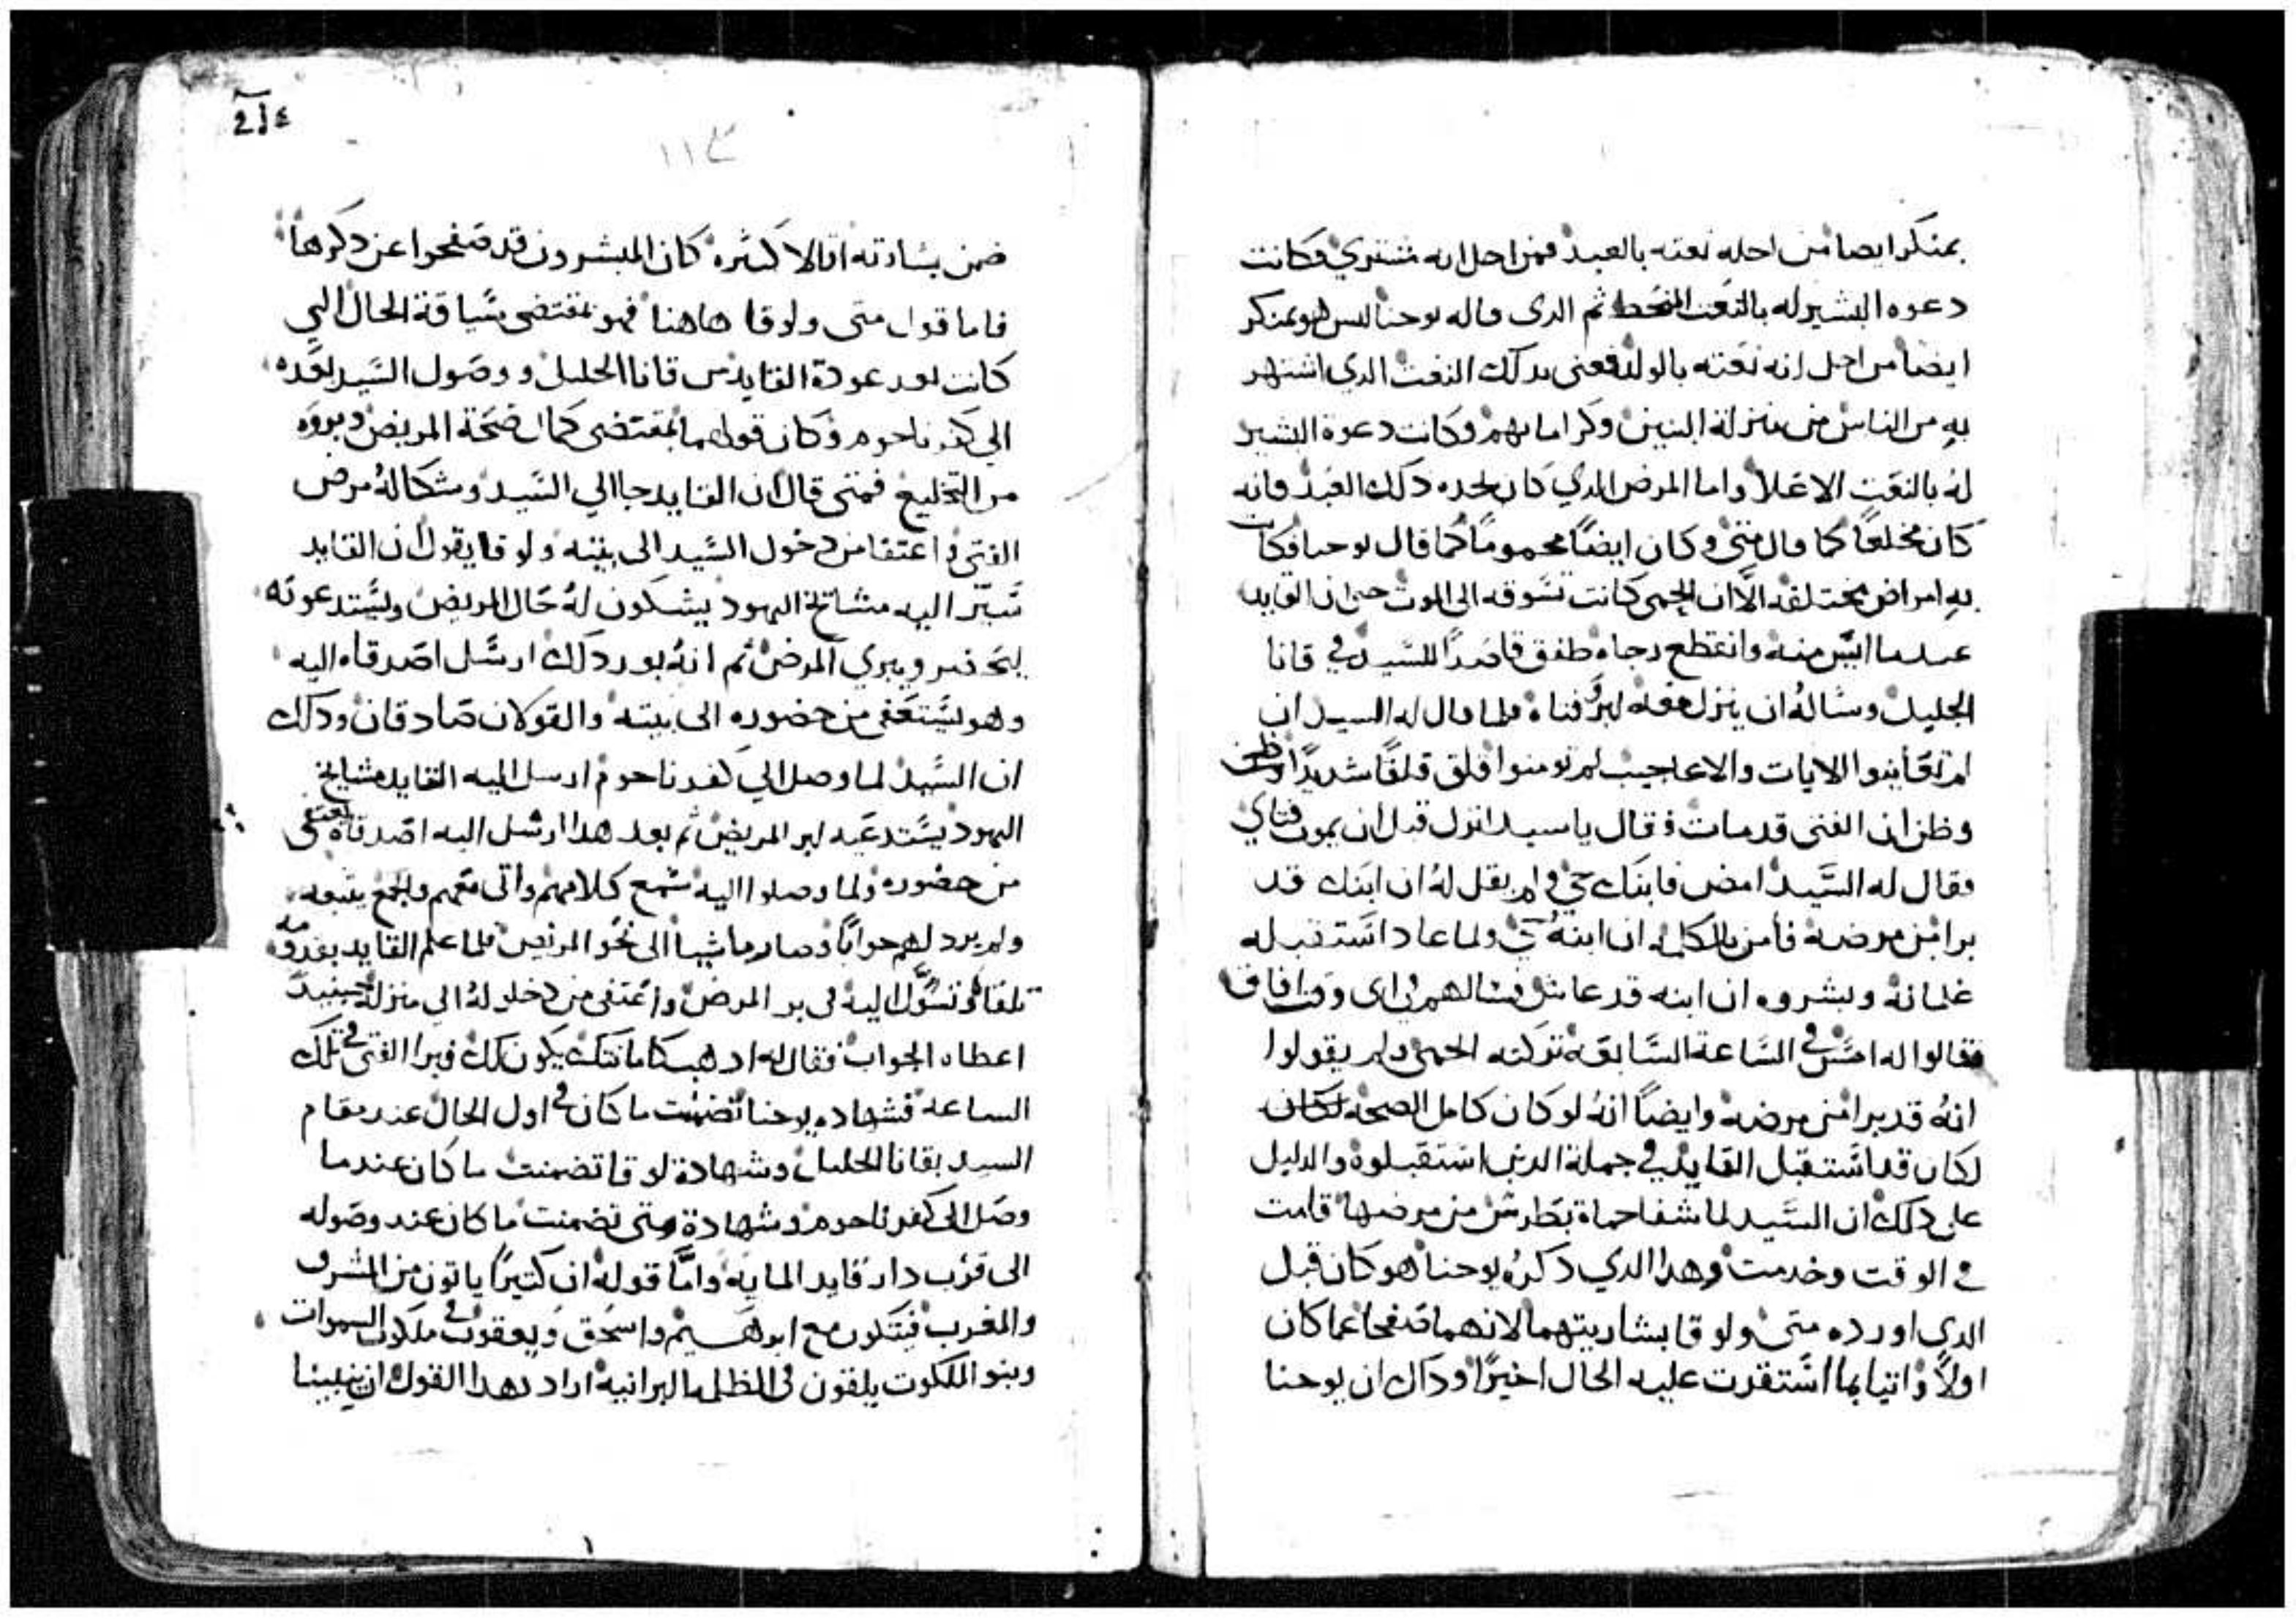 بمنكر ايضا من اجله نعته بالعبد فمن اجل انه مشتري وكانت
دعوه البشير له بالنعت المنحط ثم الدى قاله يوحنا ليس هو بمنكر
ايضا من اجل انه نعته بالولد فعنى بدلك النعت الدي اشتهر
به من الناس من منزلة البنين وكرامابهم وكانت دعوة البشير
له بالنعت الاعلا واما المرض الدي كان يجده دلك العبد فانه
كان مخلعًا كما قال متى وكان ايضًا محمومًا كما قال يوحنا فكان
به امراض مختلفه الا ان الحمى كانت تسوقه الى الموت حتى ان القايد
عندما ايس منه وانقطع رجاه طفق قاصدًا للسيد في قانا
الجليل وساله ان ينزل معه ليبرو فتاه فلما قال له السيد ان
لم تعاينوا الايات والاعاجيب لم تومنوا قلق قلقًا شديدًا وظن
وظن ان الفتى قد مات فقال يا سيد انزل قبل ان يموت فتاي
فقال له السيد امض فابنك حي ولم يقل له ان ابنك قد
برا من مرضه فامن بالكلمه ان ابنه حي ولما عاد استقبله
غلمانه وبشروه ان ابنه قد عاش فسالهم في اى وقت افاق
فقالوا له امس في الساعة السابعه تركته الحمى ولم يقولوا
انه قد برا من مرضه وايضًا انه لو كان كامل الصحه لكان
لكان قد استقبل القايد في جملة الدين استقبلوه والدليل
على دلك ان السيد لما شفا حماة بطرس من مرضها قامت
في الوقت وخدمت وهدا الدي دكره يوحنا هو كان قبل
الدى اورده متى ولوقا بشاريتهما لانهما صفحا عما كان
اولاً واتيا بما استقرت عليه الحال اخيرًا وداك ان يوحنا
٢١٤
١١٣
ضمن بشارته اقالا كثيره كان المبشرون قد صفحوا عن دكرها
فاما قول متى ولوقا هاهنا فهو بمقتضى سياقة الحال التي
كانت بعد عودة القايد من قانا الجليل ووصول السيد بعده
الي كفرناحوم وكان قولهما بمقتضى كمال صحة المريض وبروه
من التخليع فمتى قال ان القايد جا الي السيد وشكا له مرض
الفتى واعتفا من دخول السيد الى بيته ولوقا يقول ان القايد
سير اليه مشايخ اليهود يشكون له حال المريض ويستدعونه
ليحضر ويبري المرض ثم انه بعد دلك ارسل اصدقاه اليه
وهو يستعفى من حضوره الى بيته والقولان صادقان ودلك
ان السيد لما وصل الي كفرناحوم ارسل اليه القايد مشايخ
اليهود يستدعيه ليبر المريض ثم بعد هدا ارسل اليه اصدقاه يعتفى
من حضوره ولما وصلوا اليه سمع كلامهم واتى معهم والجمع يتبعه
ولم يرد لهم جوابًا وصار ماشيا الى نحو المريض فلما علم القايد بقدومه
تلقاه وتسول اليه في بر المرض واعتفى من دخوله الي منزله حينيد
اعطاه الجواب فقال له ادهب كامانتك يكون لك فبرا الفتى في تلك
الساعة فشهاده يوحنا تضمنت ما كان في اول الحال عند مقام
السيد بقانا الجليل وشهادة لوقا تضمنت ما كان عندما
وصل الى كفرناحوم وشهادة متى تضمنت ما كان عند وصوله
الى قرب دار قايد المايه واما قوله ان كثيرًا ياتون من المشرق
والمغرب فيتكون مع ابرهيم واسحق ويعقوب في ملكوت السموات
وبنو الملكوت يلقون في الظلمه البرانية اراد بهدا القول ان يبينا